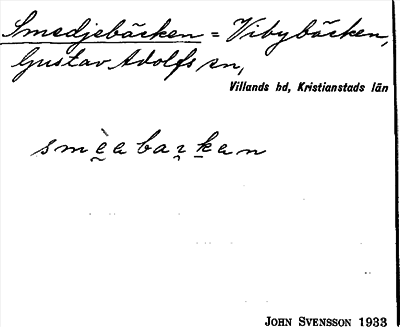 Smedjebäcken = Vibybäcken,
Gustav Adolfs sn,
Villands hd, Kristianstads län
smḛ̀abaɀ̯ḵan
JOHN SVENSSON 1933